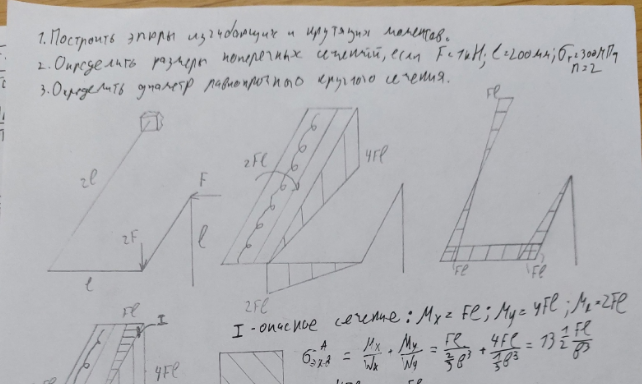 1. Построить эпюры изгибающих и крутящих моментов.
2. Определить размеры поперечных сечений, если F=1кН; l=200мм; σт=300МПа
n=2
3. Определить диаметр равнопрочного круглого сечения.
2l
2F
F
l
l
2Fl
4Fl
2Fl
Fl
Fl
Fl
Fl
I
4Fl
I - опасное сечение: Mx = Fl; My = 4Fl; Mк = 2Fl
σэкв^A = Mx/Wx + My/Wy = Fl/(2/3 b³) + 4Fl/(1/3 b³) = 13 1/2 Fl/b³